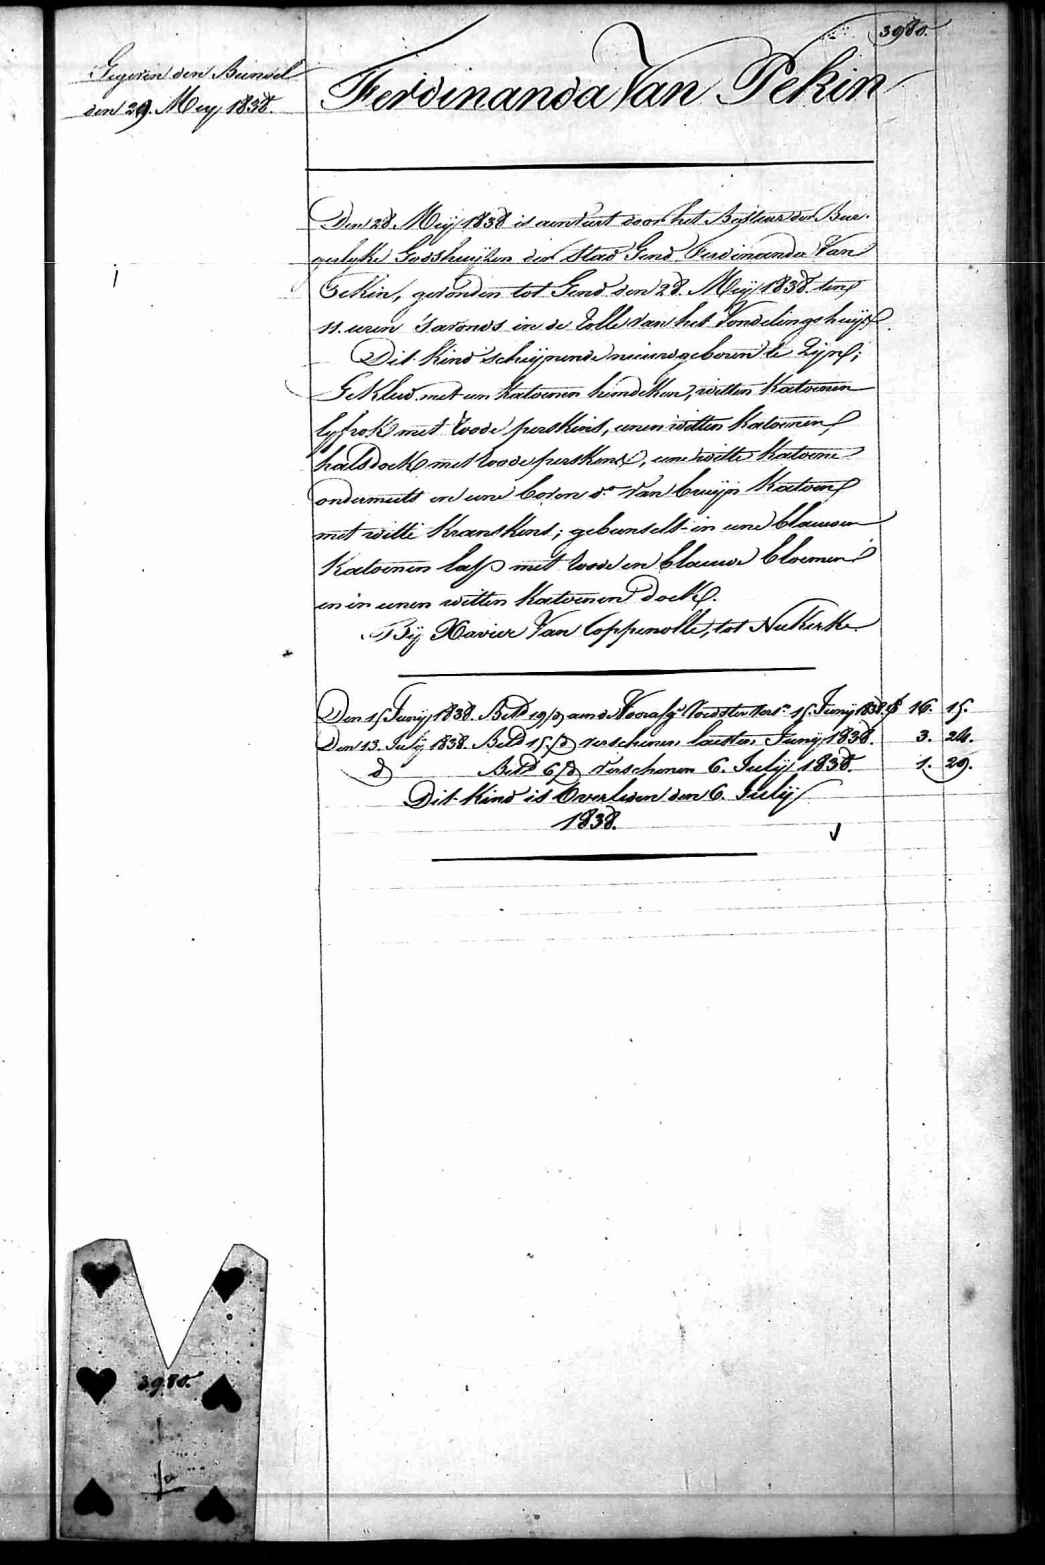 3980.
Gegeven den Bundel
den 29. Mey 1838.
Ferdinanda Van Pekin
Den 28 Meij 1838 is aenveirt door het Bestier der Bur-
gerlyke Godshuijzen der Stad Gend Ferdinanda Van
Pekin, gevonden tot Gend den 28. Meij 1838. ten
11. uren 's avonds in de rolle van het Vondelingshuijs.
Dit kind scheijnende nieuwgeboren te zijn;
Gekleed met een katoenen hemdeken, witten katoenen
lyfrok met roode perskens, eenen witten katoenen
halsdoek met roode perskens, eene witte katoene
ondermuts en eene boven do van bruijn katoen
met witte kranskens; gebunselt in eene blauwen
katoenen lap met roode en blauwe bloemen
en in eenen witten katoenen doek.
Bij Xavier Van Coppenolle, tot Nukerke
Den 15 Junij 1838. Betd 19/d aen de Voorafge Voedster vers. 15. Junij 1838. f 16. 15.
Den 13. Julij 1838. Betd 15/d verschenen laetsten Junij 1838. 3. 24.
d Betd 6/d verschenen 6. Julij 1838. 1. 29.
Dit kind is Overleden den 6. Julij
1838.
3980.